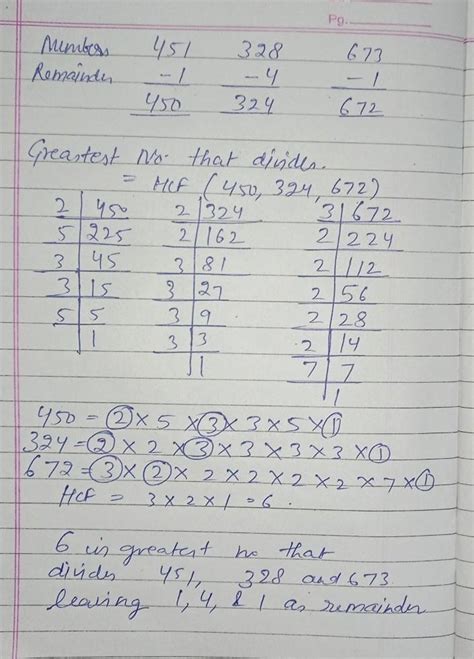 Pg.
Numbers 451 328 673
Remainder -1 -4 -1
450 324 672
Greastest No. that divides.
= HCF (450, 324, 672)
2 | 450 2 | 324 3 | 672
5 | 225 2 | 162 2 | 224
3 | 45 3 | 81 2 | 112
3 | 15 3 | 27 2 | 56
5 | 5 3 | 9 2 | 28
1 3 | 3 2 | 14
1 7 | 7
1
450 = 2 × 5 × 3 × 3 × 5 × 1
324 = 2 × 2 × 3 × 3 × 3 × 3 × 1
672 = 3 × 2 × 2 × 2 × 2 × 2 × 7 × 1
HCF = 3 × 2 × 1 = 6.
6 is greatest no that
divides 451, 328 and 673
leaving 1, 4, & 1 as remainder